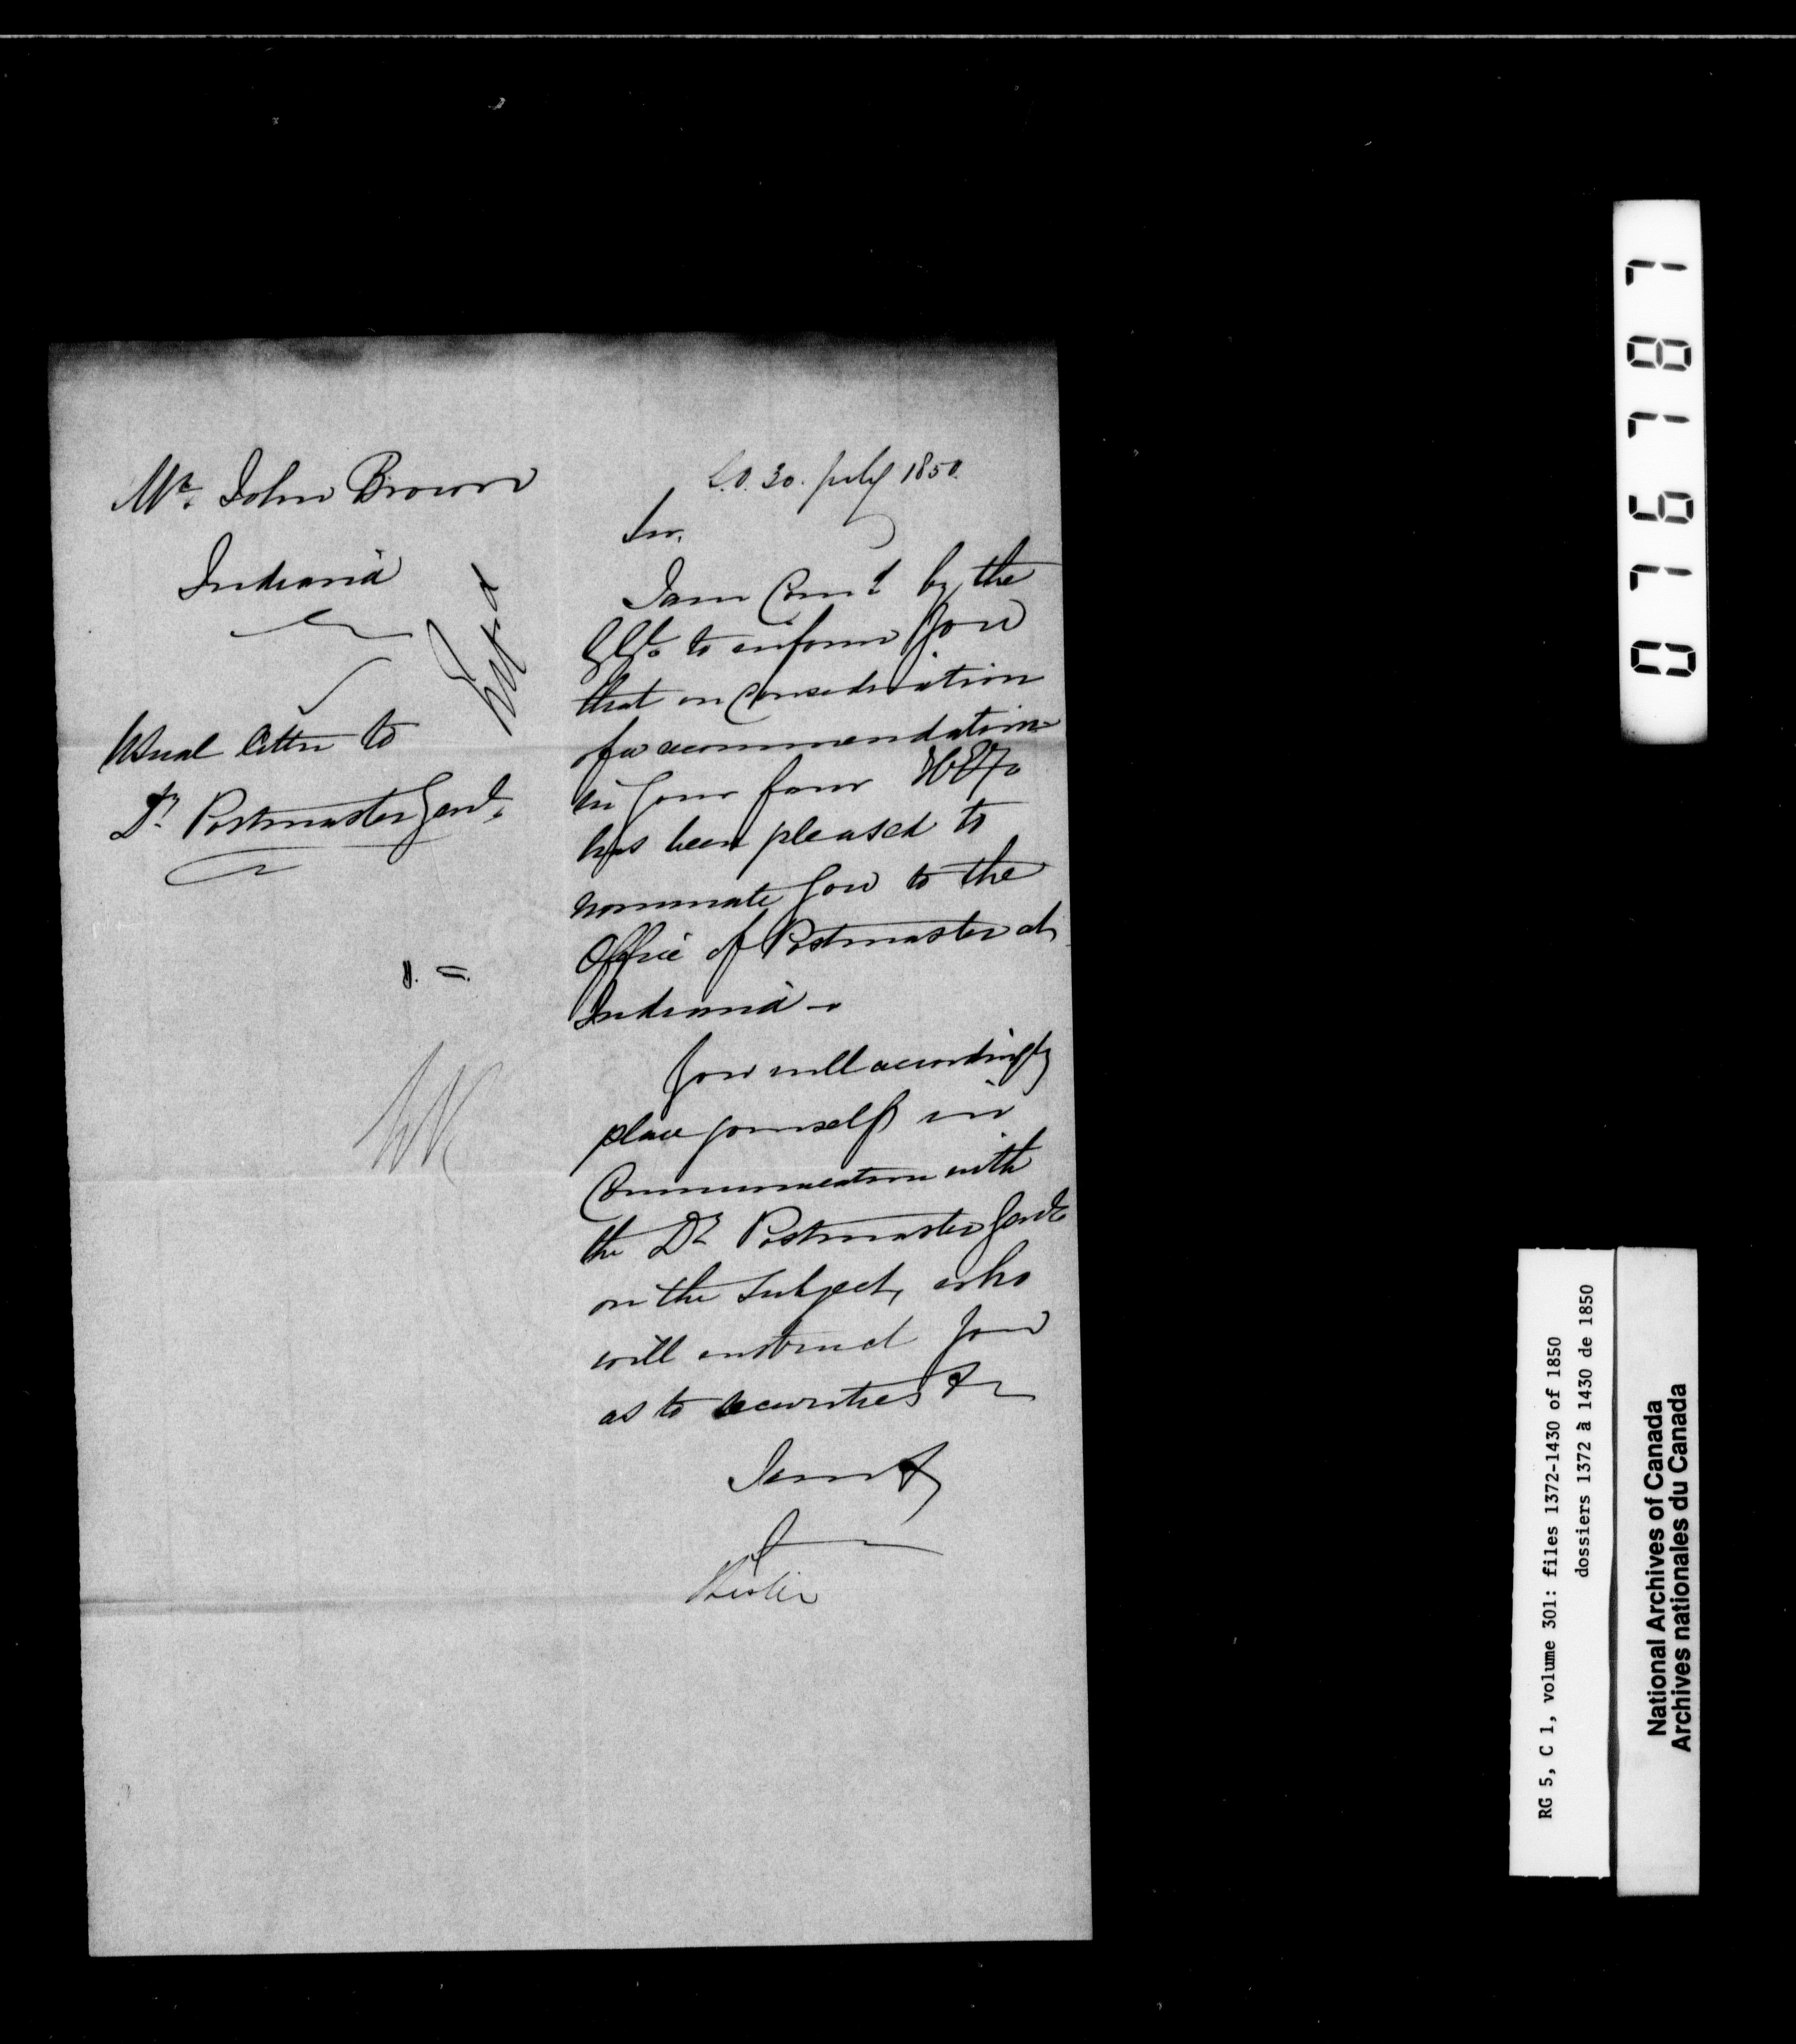 Mr. John Brown
Indiana
Usual letter to
Dy. Postmaster Genl.
S.O. 30. July 1850.
Sir,
I am Comd. by the
GGl. to inform you
that on consideration
of a recommendation
in your favor H.Ey.
has been pleased to
nominate you to the
Office of Postmaster at
Indiana -
You will accordingly
place yourself in
Communication with
the Dy. Postmaster Genl.
on the subject, who
will instruct you
as to securities &c
I am &c
076787
RG 5, C 1, volume 301: files 1372-1430 of 1850
dossiers 1372 à 1430 de 1850
National Archives of Canada
Archives nationales du Canada